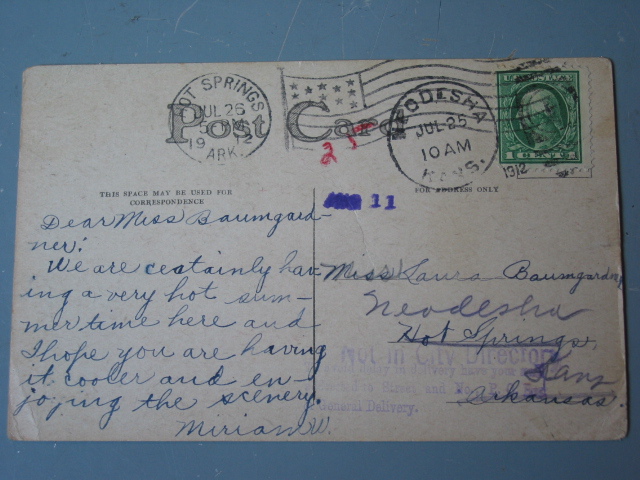 HOT SPRINGS
JUL 26
19 12
ARK.
Post Card
NEODESHA
JUL 25
10 AM
KANS.
1912
THIS SPACE MAY BE USED FOR
CORRESPONDENCE
FOR ADDRESS ONLY
11
Dear Miss Baumgard-
ner:
We are certainly hav-
ing a very hot sum-
mer time here and
I hope you are having
it cooler and en-
joying the scenery.
Miriam W.
Miss Laura Baumgardner
Neodesha
Hot Springs,
Kans
Arkansas.
Not in City Directory
General Delivery.